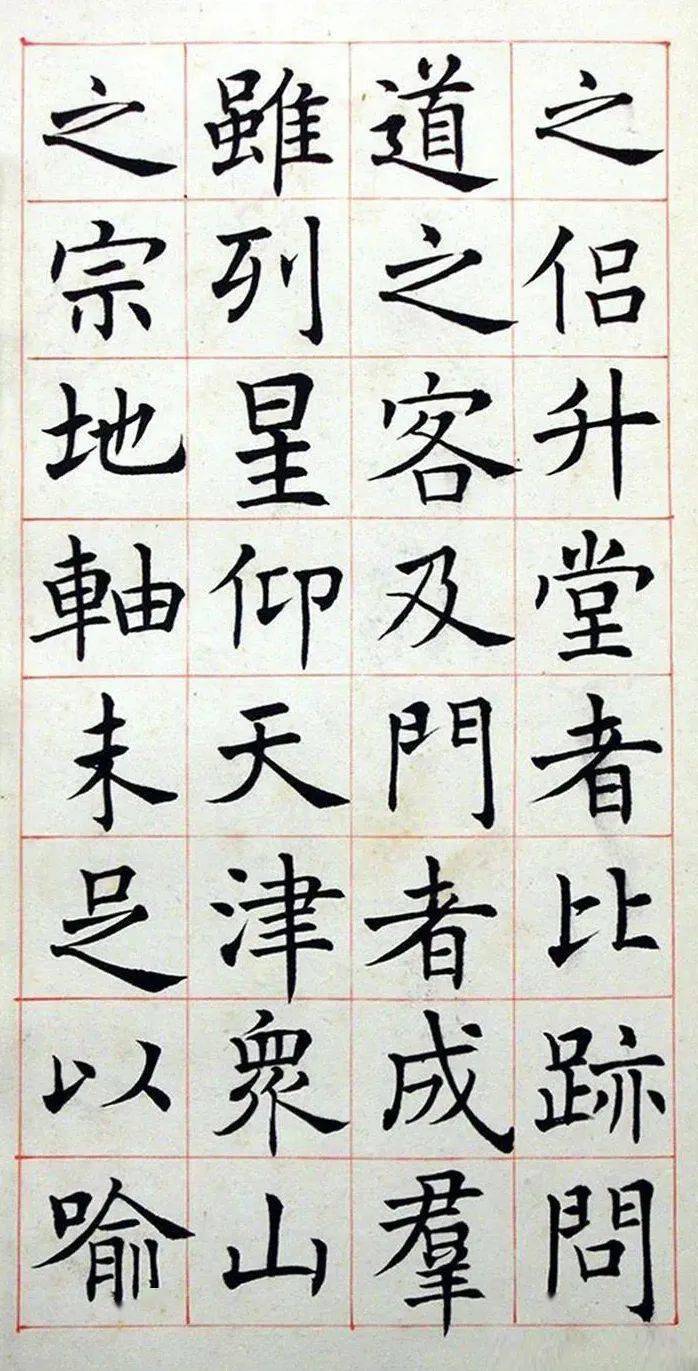 之侶升堂者比跡問
道之客及門者成羣
雖列星仰天津衆山
之宗地軸未足以喻